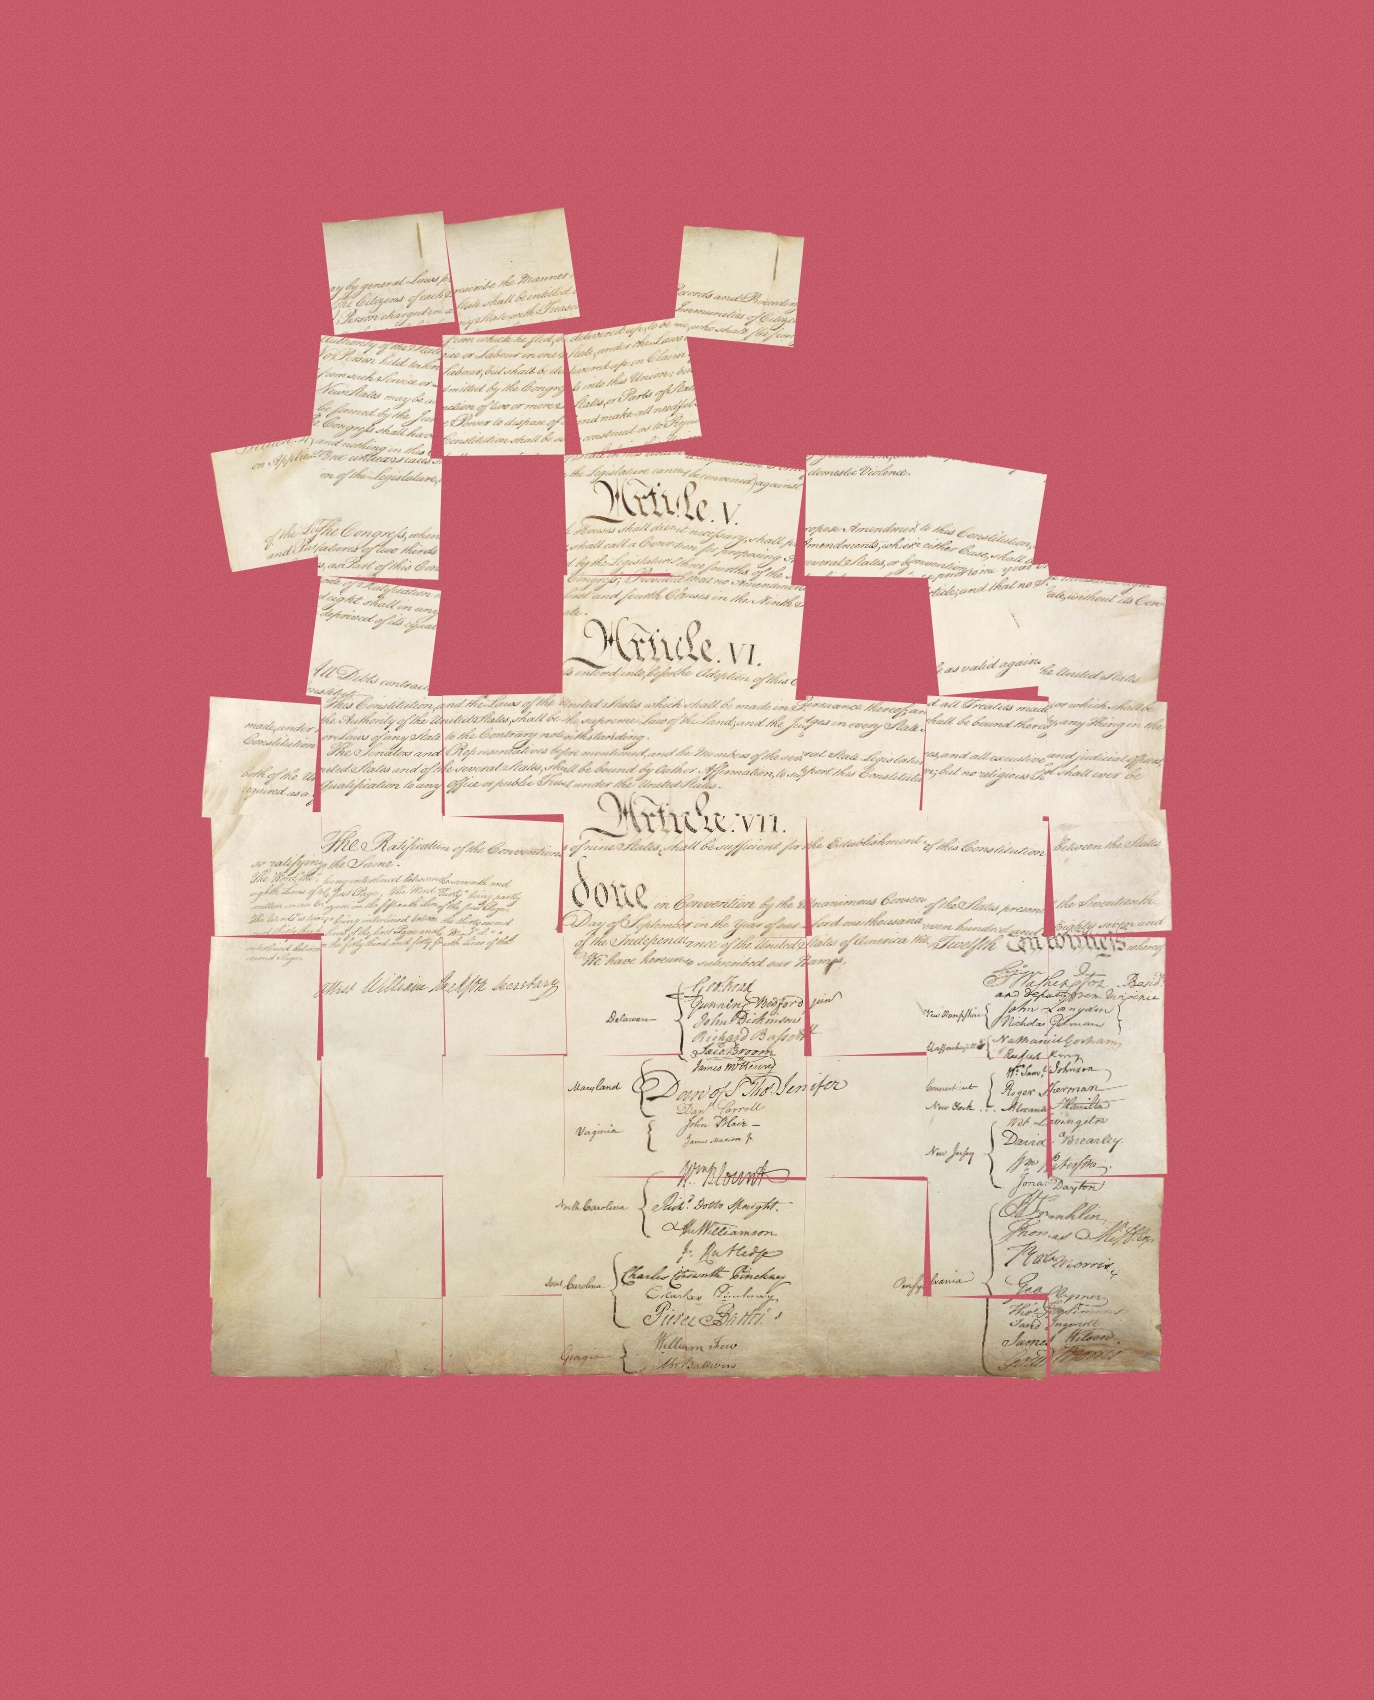 ay by general Laws
scribe the Manner
ecords and Proceedin
The Citizens of each
State shall be entitled
Immunities of Citizens
Person charged in a
ny State with Treason
who shall flee from
Authority of the State
from which he fled, be
delivered up, to be
No Person held to
ce or Labour in one
State, under the Laws
from such Service or
Labour, but shall be
livered up on Claim
New States may be
dmitted by the Congress
into this Union; but
be formed by the Junc
nction of two or more
States, or Parts of Stat
e Congress shall have
Power to dispose of
and make all needful
and nothing in this
Constitution shall be so
construed as to Prejudi
on Applic
m of the Legislature,
the Legislature cannot be convened) against
domestic Violence.
Article. V.
of the
The Congress, when
Houses shall deem it necessary, shall
ropose Amendments to this Constitution,
and
slatures of two thirds
shall call a Convention for proposing
Amendments, which in either Case, shall
s, as Part of this Con
d by the Legislatures of three fourths of the
several States, or by Conventions
ode of Ratification
Congress; Provided that no Amendment
prior to the Year
first and fourth Clauses in the Ninth
rticle; and that no
ate, without its Con
deprived of its equal
ate.
Article. VI.
All Debts contract
ts entered into, before the Adoption of this C
be as valid against the United States
This Constitution, and the Laws of the United States which shall be made in Pursuance thereof; an
d all Treaties made, or which shall be
made, under
the Authority of the United States, shall be the supreme Law of the Land; and the Judges in every State
shall be bound thereby, any Thing in the
Constitution
or Laws of any State to the Contrary notwithstanding.
The Senators and Representatives before mentioned, and the Members of the several State Legislatures, and all executive and judicial Officers,
both of the United States and of the several States, shall be bound by Oath or Affirmation, to support this Constitution; but no religious Test shall ever be
required as a Qualification to any Office or public Trust under the United States.
Article. VII.
The Ratification of the Conventions of nine States, shall be sufficient for the Establishment of this Constitution between the States
so ratifying the Same.
The Word, the, being interlined between the seventh and
eighth Lines of the first Page, The Word Thirty being partly
written on an Erazure in the fifteenth Line of the first Page,
The Words is tried being interlined between the thirty second
and thirty third Lines of the first Page and the Word the being
interlined between the forty third and forty fourth Lines of the
second Page.
done in Convention by the Unanimous Consent of the States present the Seventeenth
Day of September in the Year of our Lord one thousand seven hundred and Eighty seven and
of the Independance of the United States of America the Twelfth In witness whereof
We have hereunto subscribed our Names,
Attest William Jackson Secretary
Go: Washington Presidt
and deputy from Virginia
Delaware
Geo: Read
Gunning Bedford jun
John Dickinson
Richard Bassett
Jaco: Broom
Maryland
James McHenry
Dan of St Thos. Jenifer
Danl Carroll
Virginia
John Blair—
James Madison Jr
North Carolina
Wm Blount
Richd. Dobbs Spaight.
Hu Williamson
South Carolina
J. Rutledge
Charles Cotesworth Pinckney
Charles Pinckney
Pierce Butler
Georgia
William Few
Abr Baldwin
New Hampshire
John Langdon
Nicholas Gilman
Massachusetts
Nathaniel Gorham
Rufus King
Connecticut
Wm. Saml. Johnson
Roger Sherman
New York . . .
Alexander Hamilton
New Jersey
Wil: Livingston
David Brearley.
Wm Paterson.
Jona: Dayton
Pensylvania
B Franklin
Thomas Mifflin
Robt Morris
Geo. Clymer
Thos. FitzSimons
Jared Ingersoll
James Wilson.
Gouv Morris